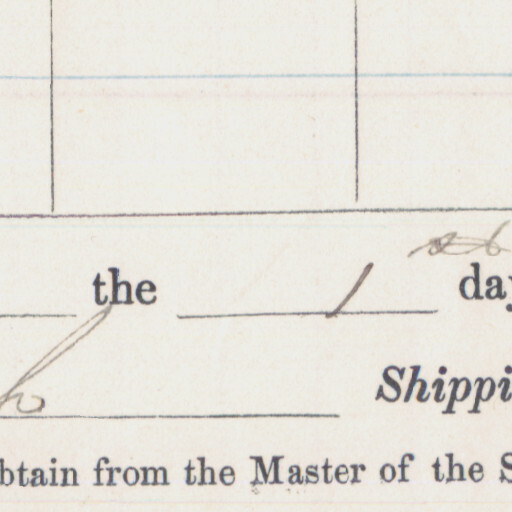 the 1st day
Shippi
btain from the Master of the S